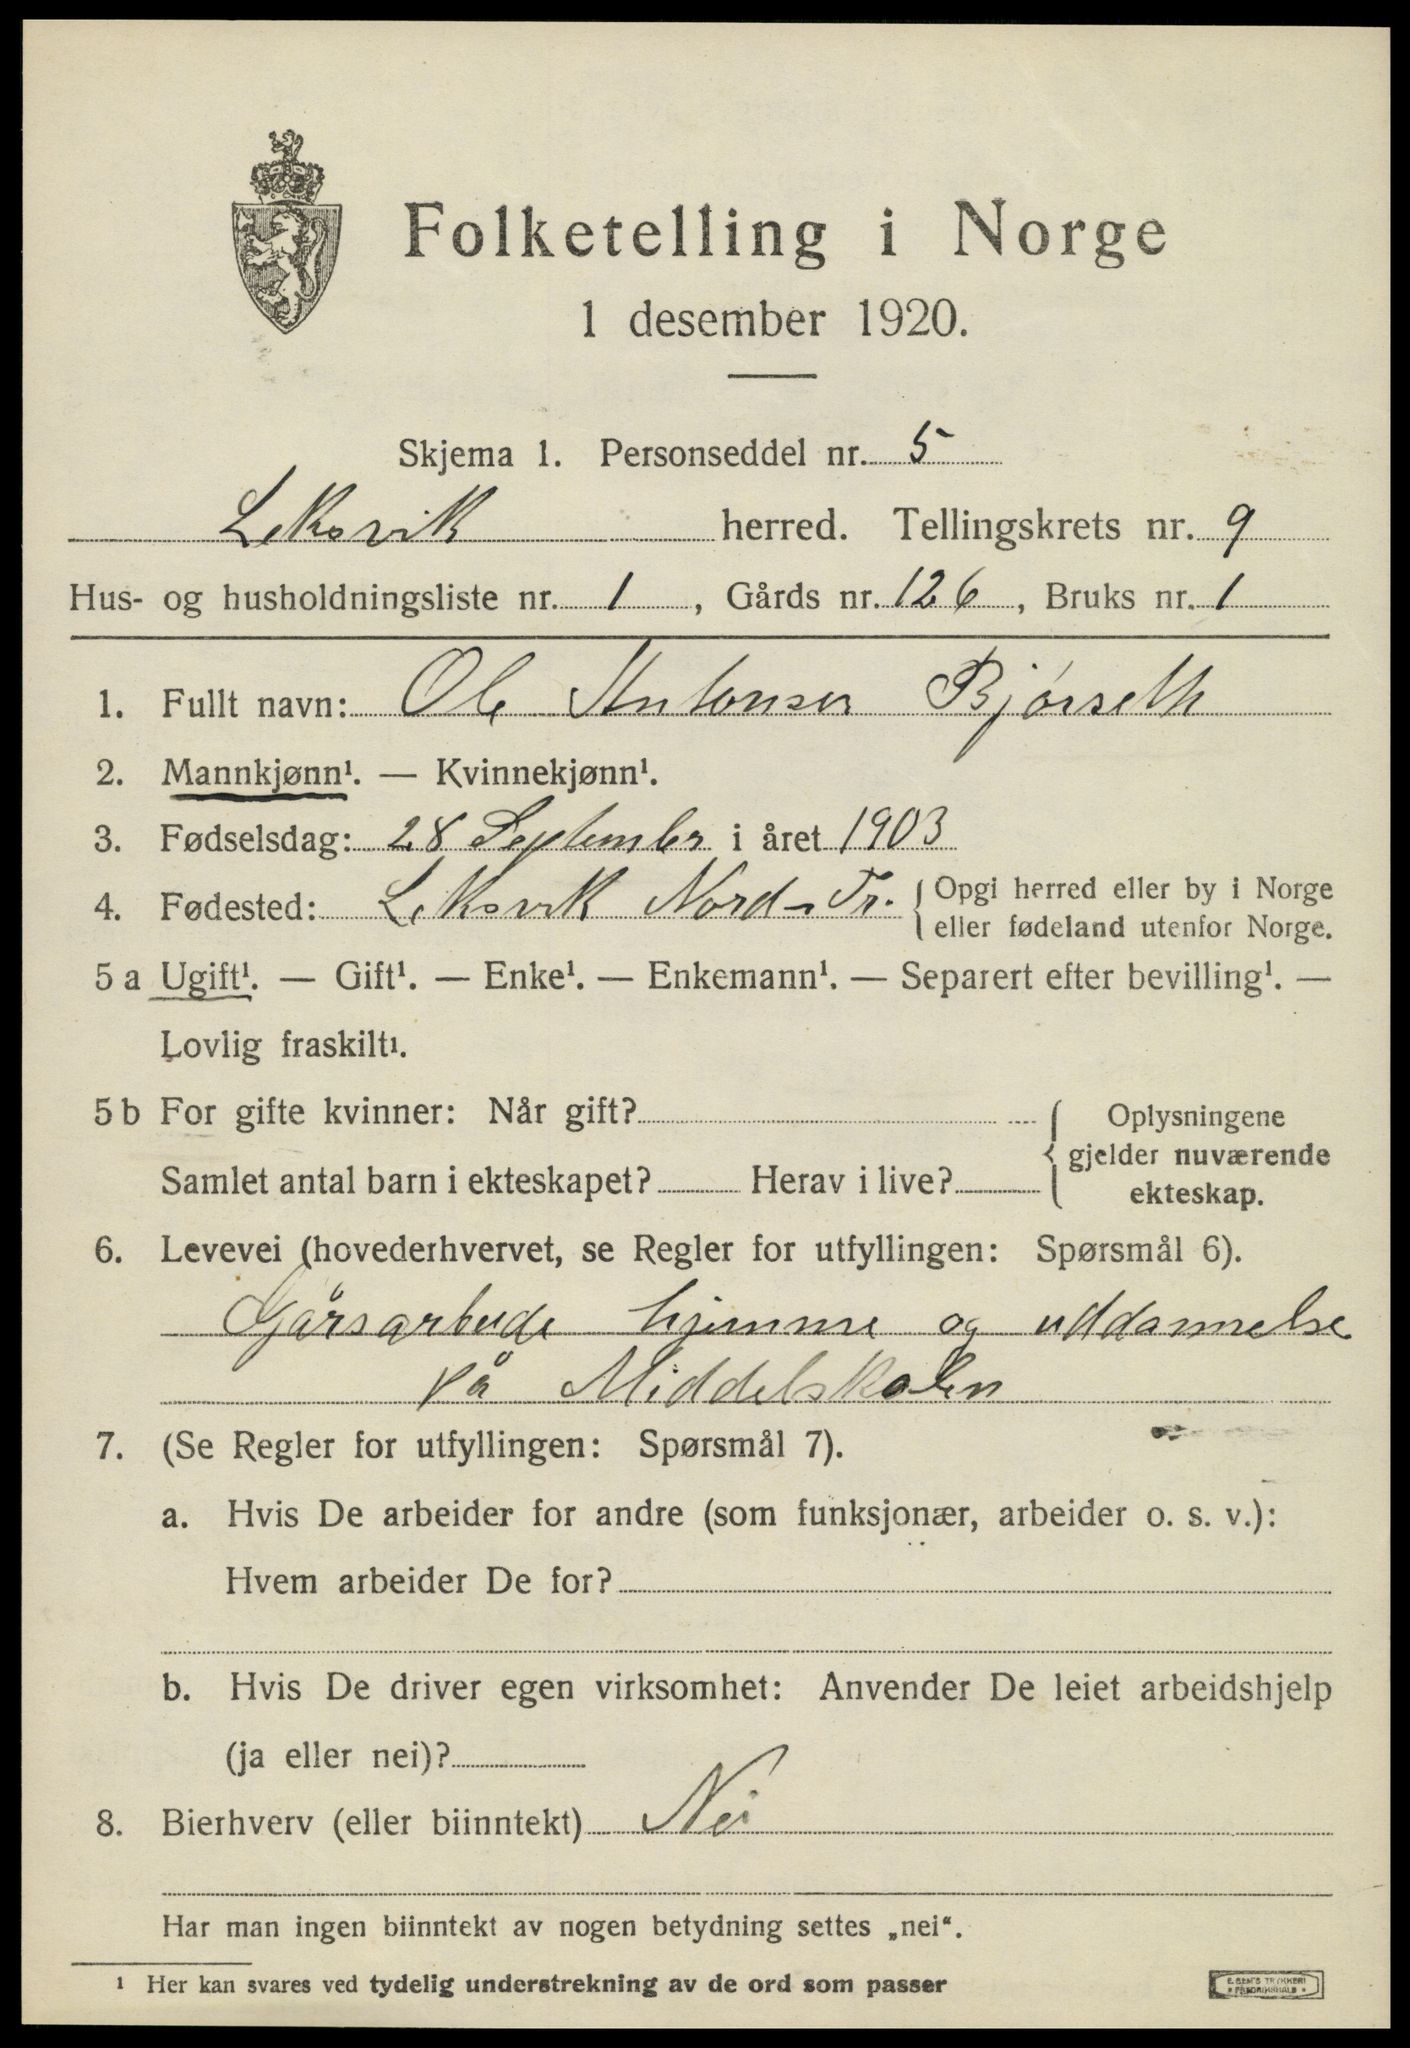 Folketelling i Norge
1 desember 1920.
Skjema 1. Personseddel nr. 5
Leksvik herred. Tellingskrets nr. 9
Hus- og husholdningsliste nr. 1, Gårds nr. 126, Bruks nr. 1
1. Fullt navn: Ole Antonsen Bjørseth
2. Mannkjønn¹. — Kvinnekjønn¹.
3. Fødselsdag: 28 September i året 1903
4. Fødested: Leksvik Nord-Tr. { Opgi herred eller by i Norge
eller fødeland utenfor Norge.
5 a Ugift¹. — Gift¹. — Enke¹. — Enkemann¹. — Separert efter bevilling¹. —
Lovlig fraskilt¹.
5 b For gifte kvinner: Når gift?
Samlet antal barn i ekteskapet? Herav i live?
{ Oplysningene
gjelder nuværende
ekteskap.
6. Levevei (hovederhvervet, se Regler for utfyllingen: Spørsmål 6).
Gårsarbeide hjemme og uddannelse
på Middelskolen
7. (Se Regler for utfyllingen: Spørsmål 7).
a. Hvis De arbeider for andre (som funksjonær, arbeider o. s. v.):
Hvem arbeider De for?
b. Hvis De driver egen virksomhet: Anvender De leiet arbeidshjelp
(ja eller nei)?
8. Bierhverv (eller biinntekt) Nei
Har man ingen biinntekt av nogen betydning settes „nei“.
¹ Her kan svares ved tydelig understrekning av de ord som passer
E. SEM'S TRYKKERI
* FREDRIKSHALD *